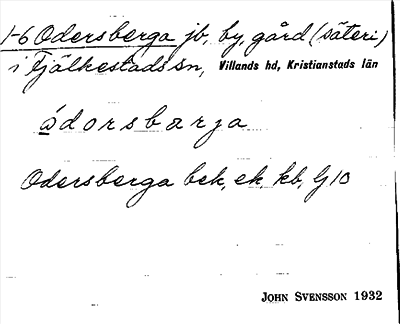 1-6 Odersberga jb, by, gård (säteri)
i Fjälkestads sn, Villands hd, Kristianstads län
ádorsbarja
Odersberga bek, ek, kb, G 10
JOHN SVENSSON 1932